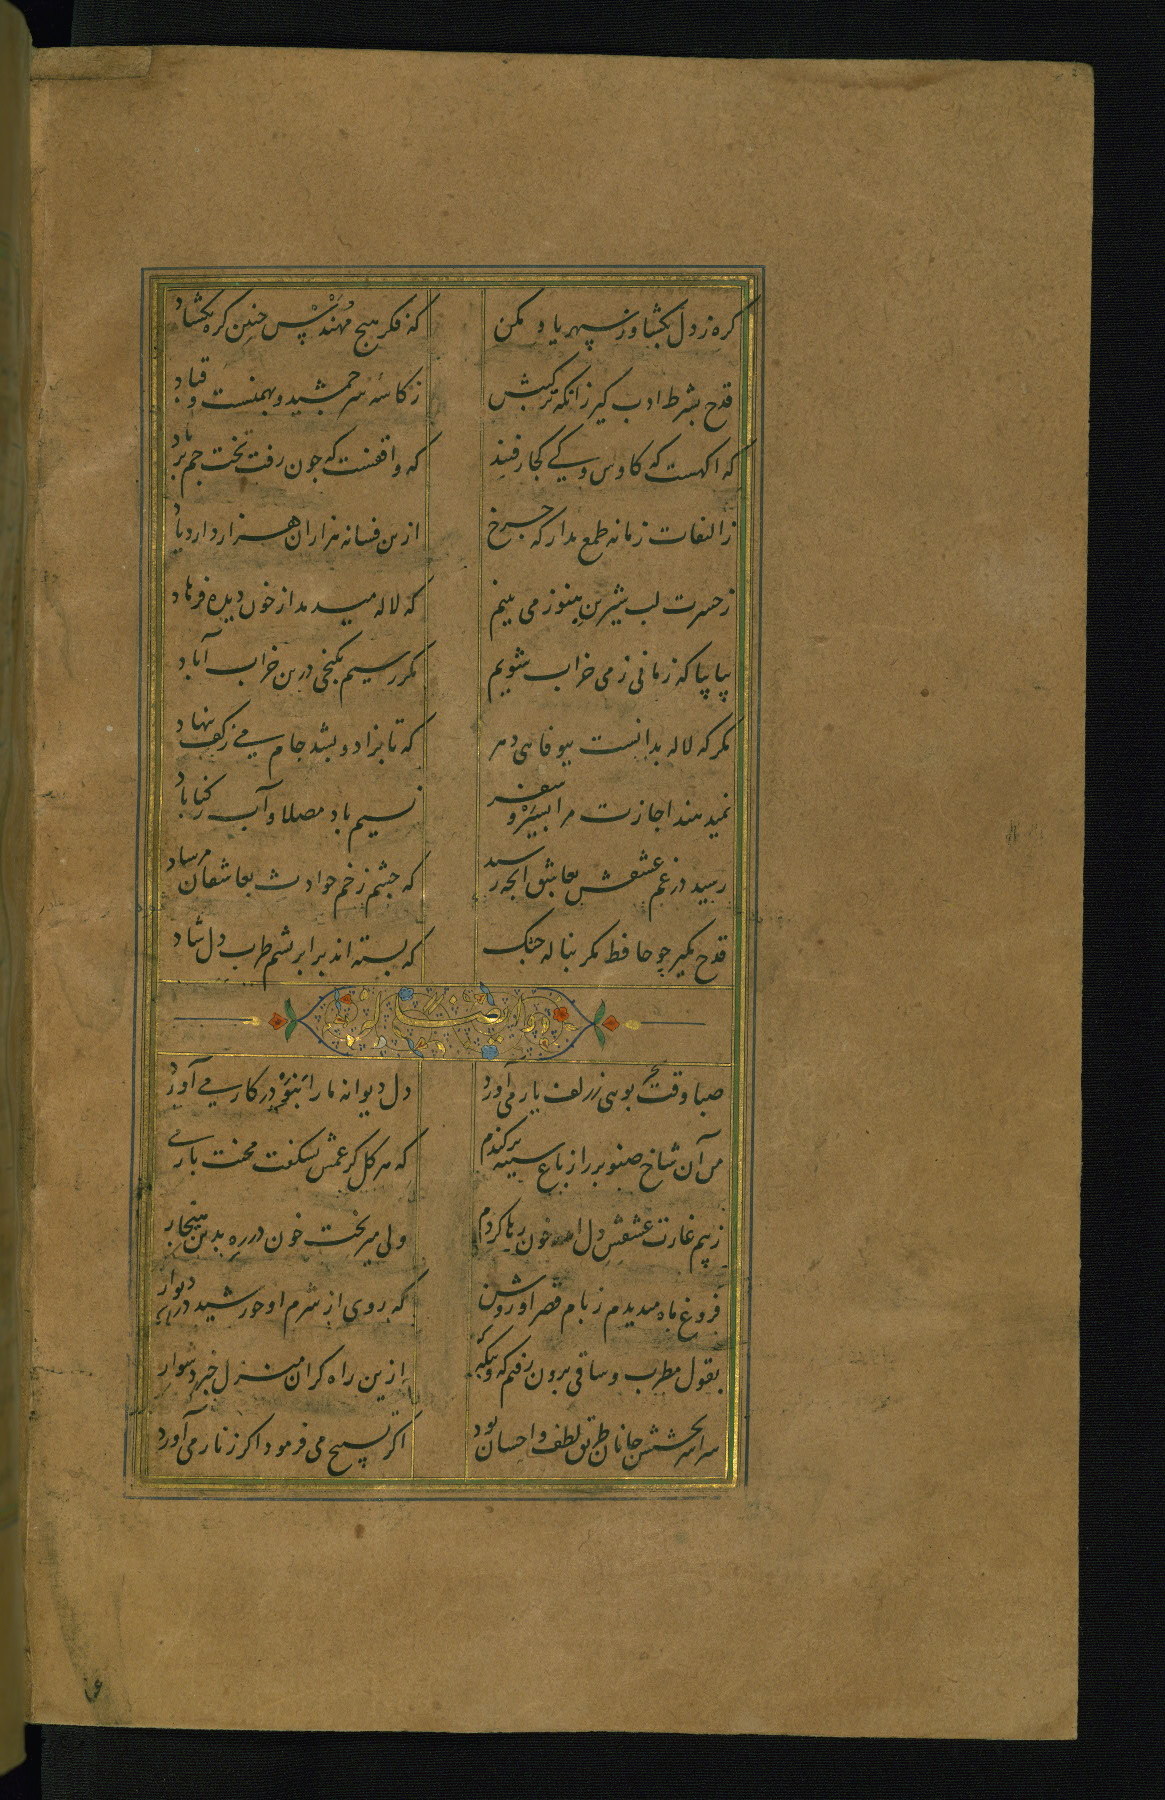 کره ز دل بکشا وز سپهر یاد مکن که فکر هیچ مهندس چنین کره نکشاد
قدح بشرط ادب کیر زانکه ترکیبش ز کاسه سر جمشید و بهمنست و قباد
که اکهست که کاوس و کی کجا رفتند که واقفست که چون رفت تخت جم بر باد
ز التفات زمانه طمع مدار که چرخ ازین فسانه هزاران هزار دارد یاد
ز حسرت لب شیرین هنوز می بینم که لاله میدمد از خون دیده فرهاد
بیا بیا که زمانی ز می خراب شویم مکر رسیم بکنجی درین خراب آباد
مکر که لاله بدانست بیوفایی دهر که تا بزاد و بشد جام می ز کف ننهاد
نمیدهند اجازت مرا بسیر و سفر نسیم باد مصلا و آب رکناباد
رسید در غم عشقش بعاشق انچه رسید که چشم زخم حوادث بعاشقان مرساد
قدح مکیر چو حافظ مکر بناله چنک که بسته اند بر ابریشم طرب دل شاد
وله ایضا
صبا وقت سحر بویی ز زلف یار می آورد دل دیوانه ما را بنو در کار می آورد
من آن شاخ صنوبر را ز باغ سینه برکندم که هر کل کز غمش بشکفت محنت بار می
ز بیم غارت عشقش دل خون رها کردم ولی میریخت خون در ره بدین هنجار
فروغ ماه میدیدم ز بام قصر او روشن که روی از شرم او خورشید در دیوار
بقول مطرب و ساقی برون رفتم که و بیکه ازین راه کران منزل خبر دشوار
سراسر بخشش جانان طریق لطف و احسان بود اکر تسبیح می فرمود اکر زنار می آورد